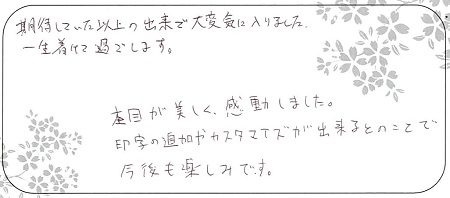 期待していた以上の出来で大変気に入りました。
一生着けて過ごします。
産目が美しく、感動しました。
印字の追加やカスタマイズが出来るとのことで
今後も楽しみです。